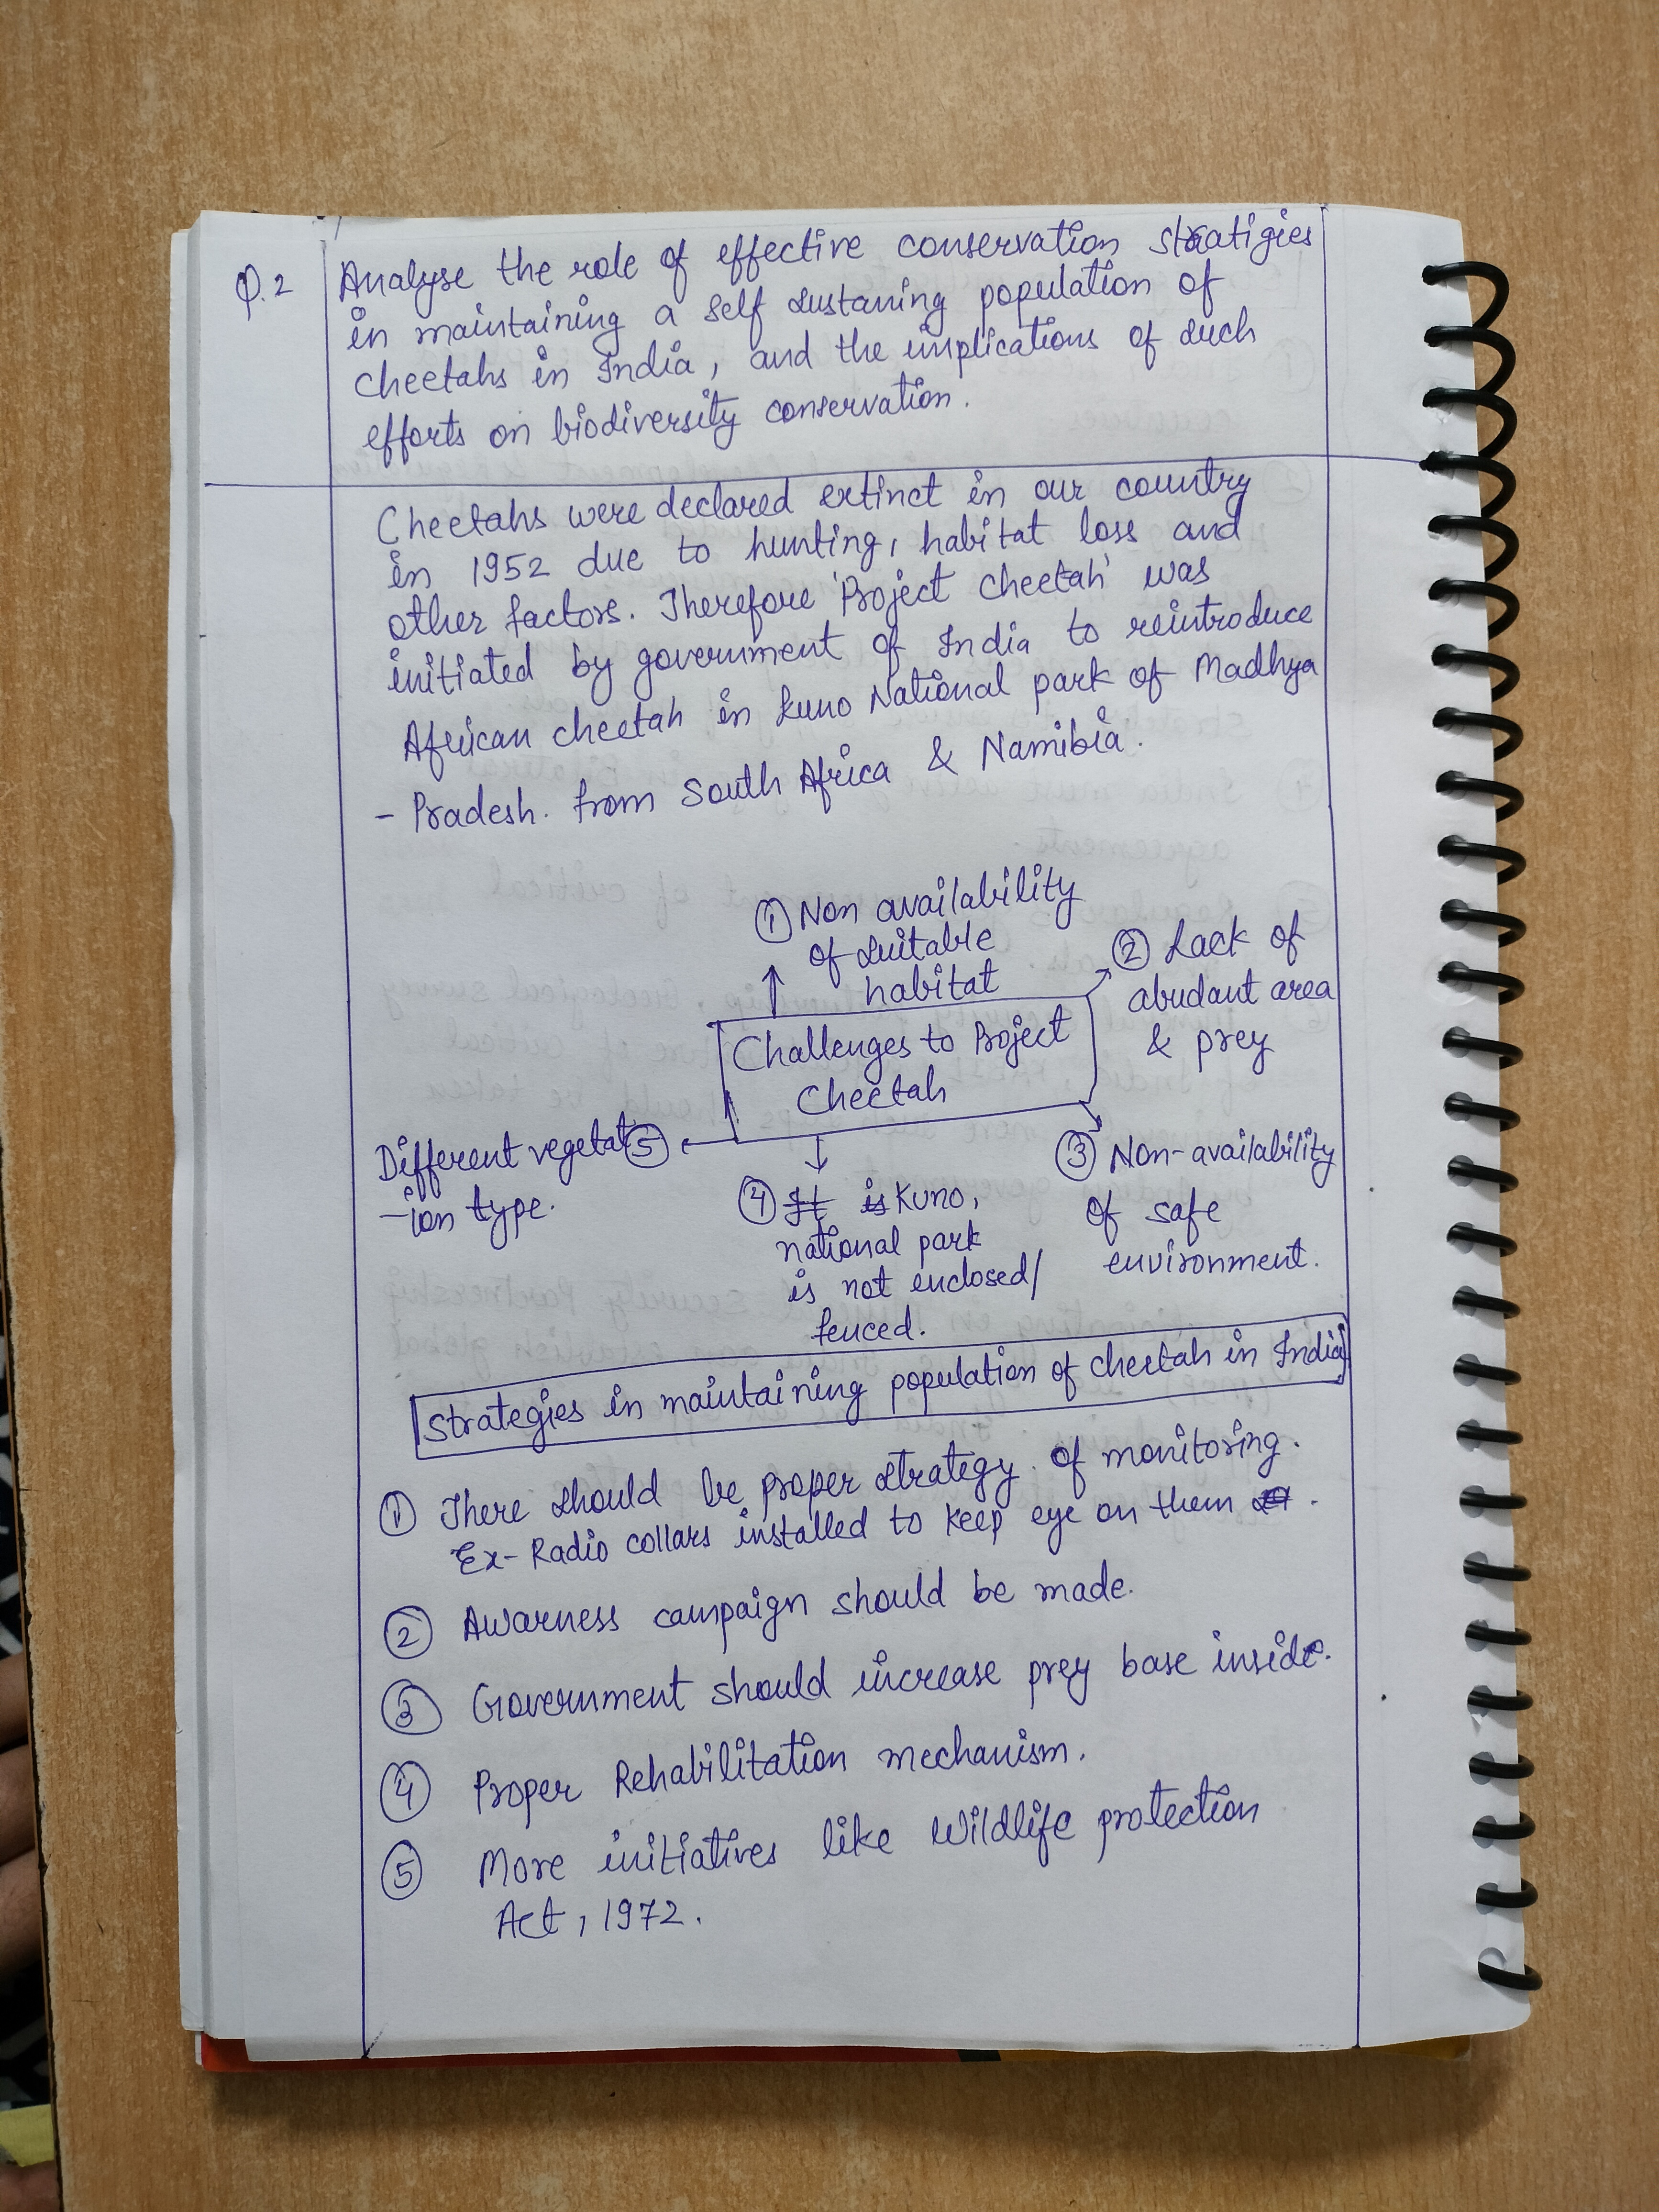 Q.2 Analyse the role of effective conservation stratigies
in maintaining a self sustaning population of
cheetahs in India, and the implications of such
efforts on biodiversity conservation.
Cheetahs were declared extinct in our country
in 1952 due to hunting, habitat loss and
other factors. Therefore 'Project cheetah' was
initiated by government of India to reintroduce
African cheetah in Kuno National park of Madhya
- Pradesh. from South Africa & Namibia.
① Non availability
of suitable
habitat
② Lack of
abudant area
& prey
Challenges to Project
Cheetah
③ Non-availability
of safe
environment.
④ It is Kuno,
national park
is not enclosed/
fenced.
⑤ Different vegetat
-ion type.
Strategies in maintaining population of cheetah in India
① There should be proper strategy of monitoring.
Ex- Radio collars installed to keep eye on them .
② Awarness campaign should be made.
③ Government should increase prey base inside.
④ Proper Rehabilitation mechanism.
⑤ More initiatives like Wildlife protection
Act, 1972.